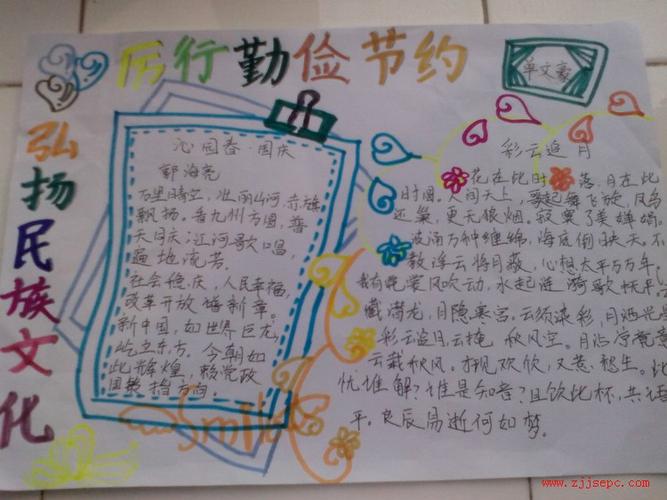 厉行勤俭节约
单文豪
弘扬民族文化
沁园春·国庆
郭海亮
万里晴空，壮丽山河，赤旗
飘扬。看九州方圆，普
天同庆；江河歌唱，
遍地流芳。
社会稳庆，人民幸福，
改革开放谱新章。
新中国，如世界巨龙，
屹立东方。今朝如
此辉煌，赖党政
国策指方向。
Smile
彩云追月
花在此时落，月在此
时圆。人间天上，舞飞旋，凤鸟
还巢，更无狼烟。寂寞了美婵娟。
波涌万种缠绵，海底倒映天，不
教浮云将月蔽，心想太平万万年。
我有霓裳风吹动，水起涟漪歌
藏潜龙，月隐寒宫。云须漆彩，月洒光
彩云追月，云掩秋风空。月
云载秋风。欢欣，又惹愁生。
忧谁解？谁是知音？且饮此杯，共
平。良辰易逝何如梦。
www.zjjsepc.com